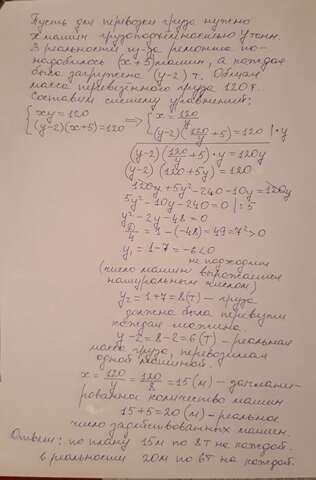 Пусть для перевозки груза нужно
x машин грузоподъёмностью y тонн.
В реальности из-за ремонта по-
надобилось (x+5) машин, а каждая
была загружена (y-2) т. Общая
масса перевезённого груза 120 т.
Составим систему уравнений:
{xy=120 ⇒ {x=120/y
{(y-2)(x+5)=120 {(y-2)(120/y+5)=120 | ·y
(y-2)(120/y+5)·y=120y
(y-2)(120+5y)=120y
120y+5y²-240-10y=120y
5y²-10y-240=0 |:5
y²-2y-48=0
D/4=1-(-48)=49=7²>0
y₁=1-7=-6<0
не подходит
(число машин выражается
натуральным числом)
y₂=1+7=8(т) – груза
должна была перевезти
каждая машина.
y-2=8-2=6(т) – реальная
масса груза, перевозимая
одной машиной.
x=120/y=120/8=15(м) – запланиро-
рованное количество машин
15+5=20(м) – реальное
число задействованных машин.
Ответ: по плану 15м по 8т на каждой.
в реальности 20м по 6т на каждой.